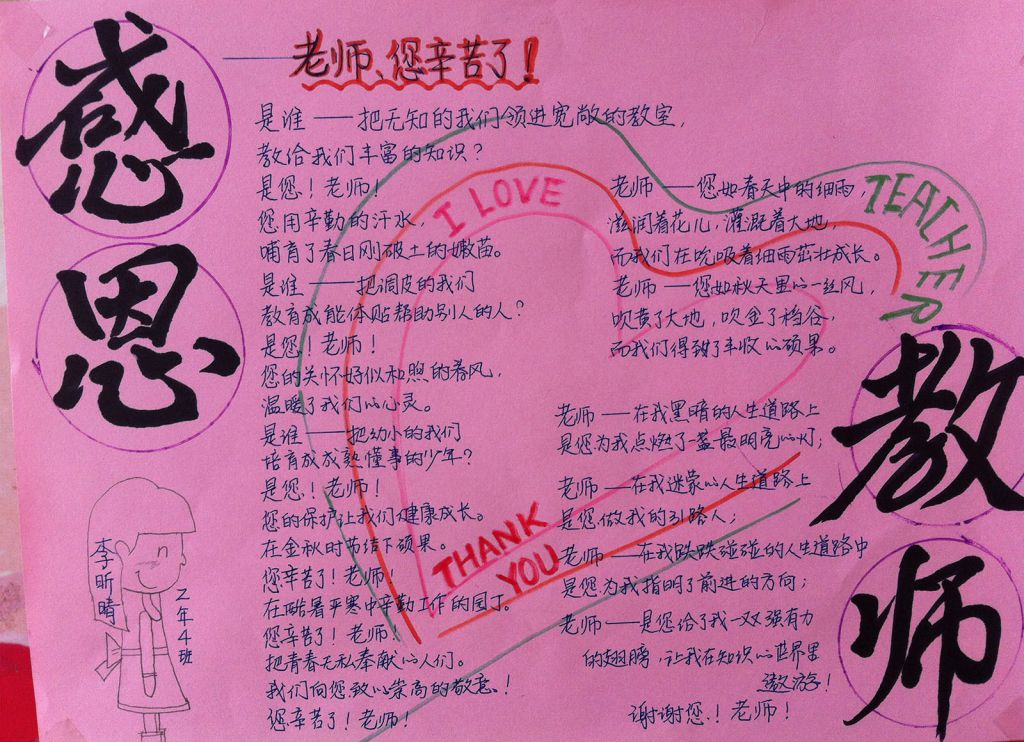 感恩
老师、您辛苦了！
是谁——把无知的我们领进宽敞的教室，
教给我们丰富的知识？
是您！老师！
您用辛勤的汗水，
哺育了春日刚破土的嫩苗。
是谁——把调皮的我们
教育成能体贴帮助别人的人？
是您！老师！
您的关怀好似和煦的春风，
温暖了我们的心灵。
是谁——把幼小的我们
培育成成熟懂事的少年？
是您！老师！
您的保护让我们健康成长。
在金秋时节结下硕果。
您辛苦了！老师！
在酷暑严寒中辛勤工作的园丁。
您辛苦了！老师！
把青春无私奉献的人们。
我们向您致以崇高的敬意。！
您辛苦了！老师！
I LOVE
TEACHER
THANK
YOU
老师——您如春天中的细雨，
滋润着花儿，灌溉着大地，
而我们在吮吸着细雨茁壮成长。
老师——您如秋天里的一丝风，
吹黄了大地，吹金了稻谷，
而我们得到了丰收的硕果。
老师——在我黑暗的人生道路上
是您为我点燃了一盏最明亮的灯；
老师——在我迷蒙的人生道路上
是您做我的引路人；
老师——在我跌跌碰碰的人生道路中
是您为我指明了前进的方向；
老师——是您给了我一双强有力
的翅膀，让我在知识的世界里
遨游！
谢谢您！老师！
教师
李昕晴
乙年4班